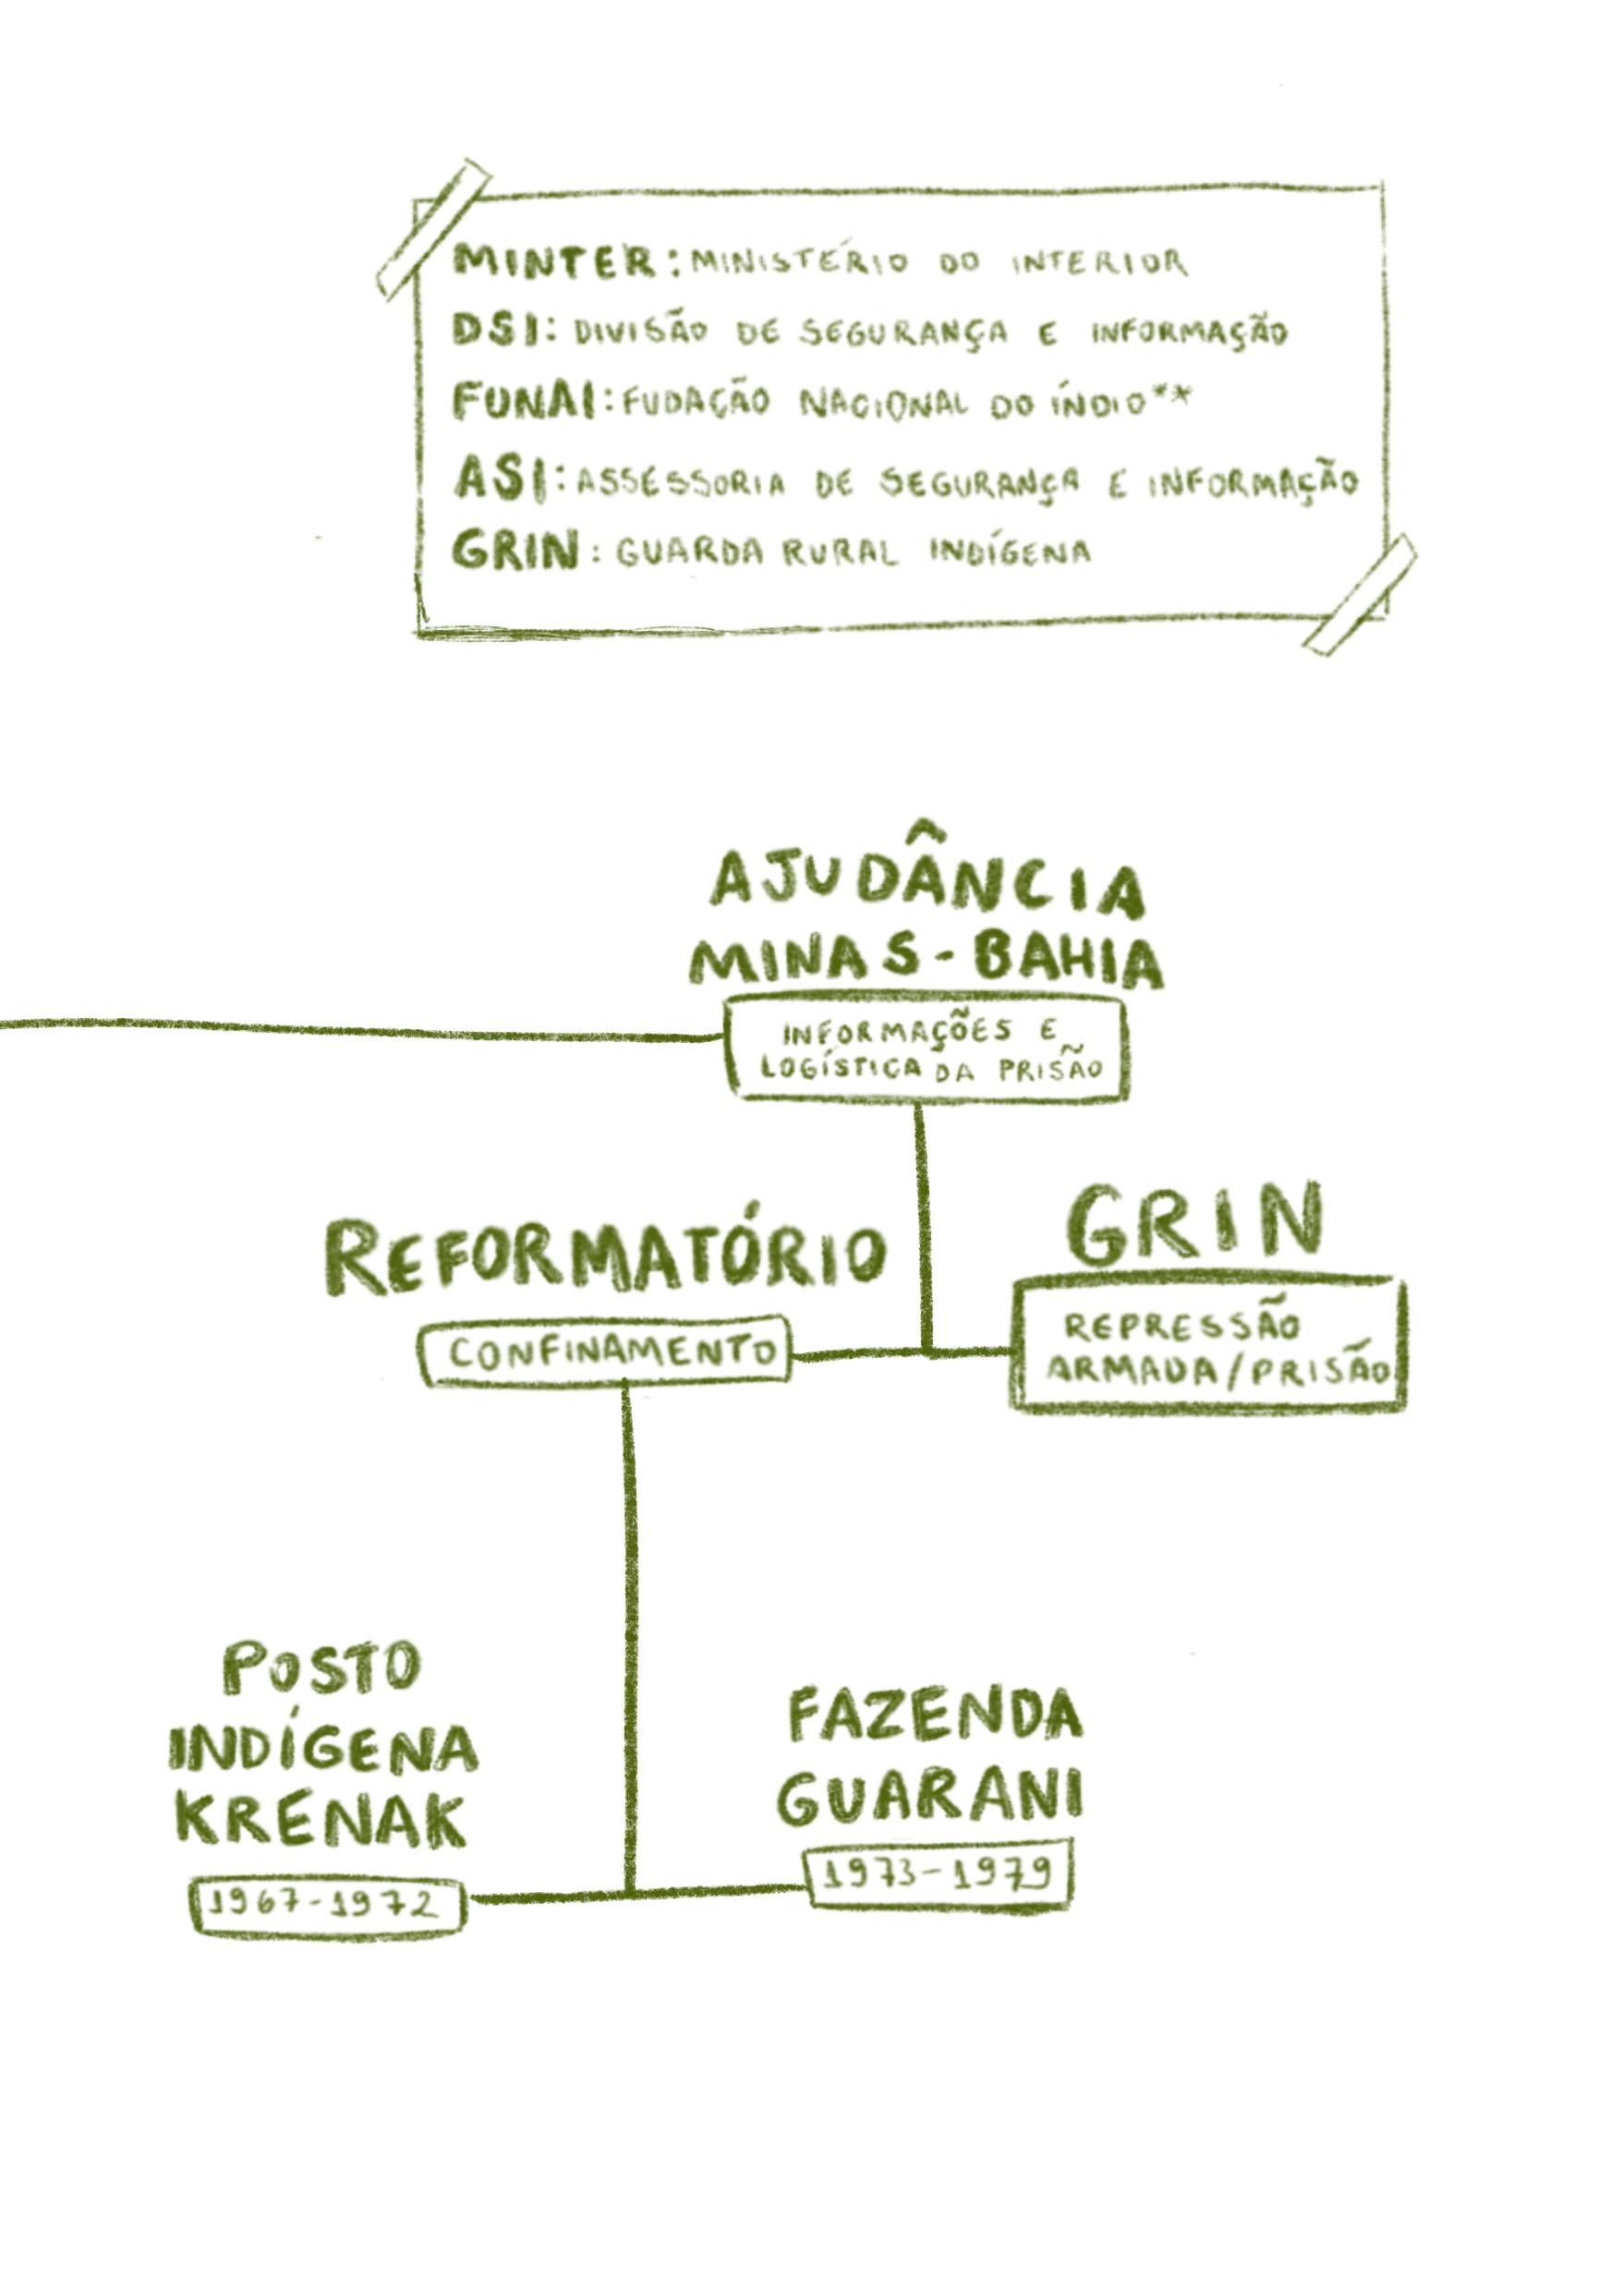 MINTER: MINISTÉRIO DO INTERIOR
DSI: DIVISÃO DE SEGURANÇA E INFORMAÇÃO
FUNAI: FUDAÇÃO NACIONAL DO ÍNDIO**
ASI: ASSESSORIA DE SEGURANÇA E INFORMAÇÃO
GRIN: GUARDA RURAL INDÍGENA
AJUDÂNCIA
MINAS-BAHIA
INFORMAÇÕES E
LOGÍSTICA DA PRISÃO
REFORMATÓRIO
CONFINAMENTO
GRIN
REPRESSÃO
ARMADA/PRISÃO
POSTO
INDÍGENA
KRENAK
1967-1972
FAZENDA
GUARANI
1973-1979